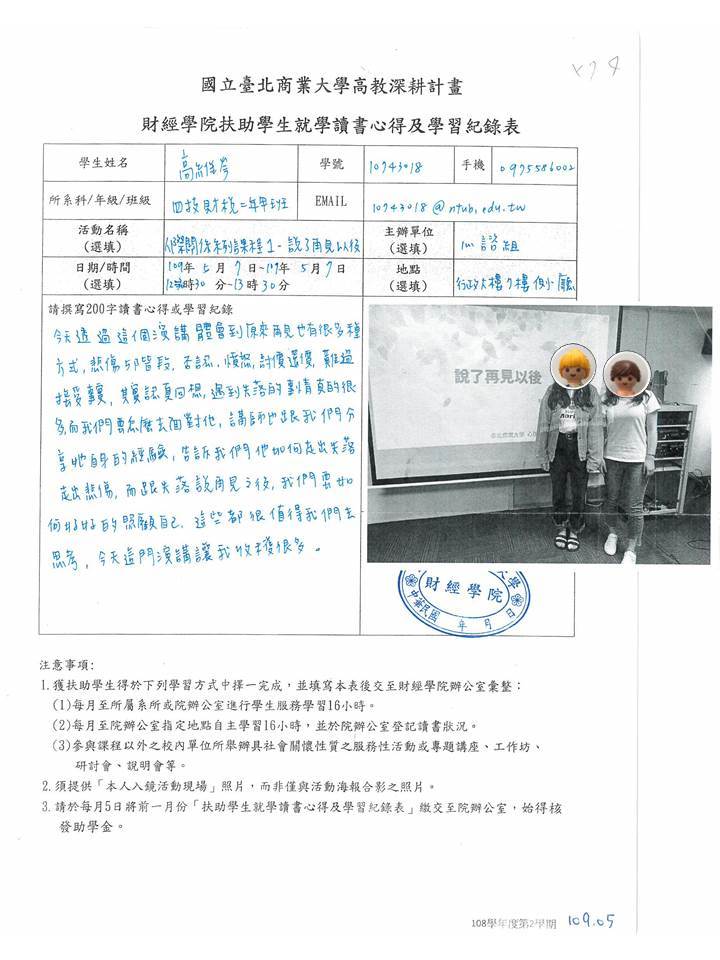 國立臺北商業大學高教深耕計畫
財經學院扶助學生就學讀書心得及學習紀錄表
學生姓名 高 學號 10743018 手機 0975586002
所系科/年級/班級 四技財稅二年甲班 EMAIL 10743018@ntub.edu.tw
活動名稱(選填) 人際關係系列課程1-說了再見以後 主辦單位(選填) 心諮組
日期/時間(選填) 109年5月7日~109年5月7日 12時30分~13時30分 地點(選填) 行政大樓7樓 廳
請撰寫200字讀書心得或學習紀錄
今天透過這個演講體會到原來再見也有很多種
方式,悲傷5階段,否認、憤怒、討價還價、難過
接受事實,其實認真回想,遇到失落的事情真的很
多,而我們要怎麼去面對他,講師也跟我們分
享她自身的經驗,告訴我們他如何走出失落
走出悲傷,而跟失落說再見之後,我們要如
何好好的照顧自己,這些都很值得我們去
思考,今天這門演講讓我收穫很多。
說了再見以後
財經學院
中華民國 年 月 日
注意事項:
1.獲扶助學生得於下列學習方式中擇一完成,並填寫本表後交至財經學院辦公室彙整:
(1)每月至所屬系所或院辦公室進行學生服務學習16小時。
(2)每月至院辦公室指定地點自主學習16小時,並於院辦公室登記讀書狀況。
(3)參與課程以外之校內單位所舉辦具社會關懷性質之服務性活動或專題講座、工作坊、
研討會、說明會等。
2.須提供「本人入鏡活動現場」照片,而非僅與活動海報合影之照片。
3.請於每月5日將前一月份「扶助學生就學讀書心得及學習紀錄表」繳交至院辦公室,始得核
發助學金。
108學年度第2學期 109.05